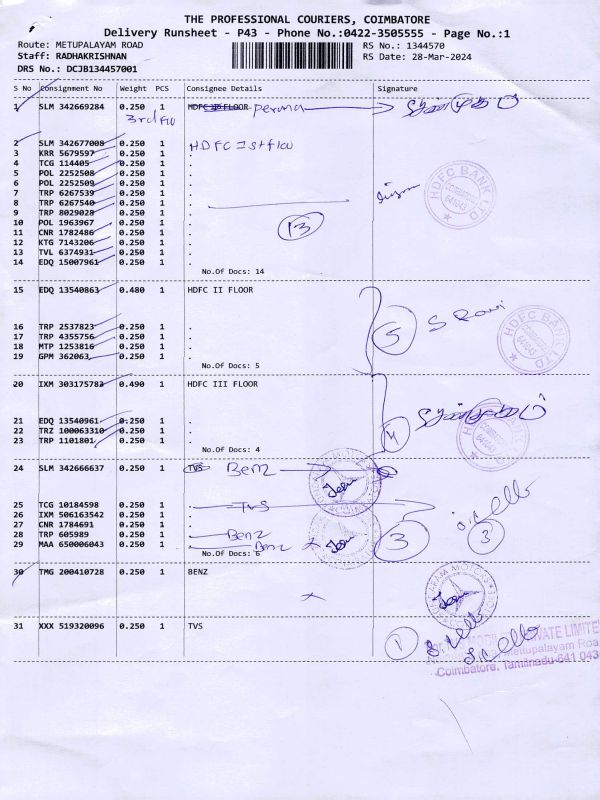 THE PROFESSIONAL COURIERS, COIMBATORE
Delivery Runsheet - P43 - Phone No.:0422-3505555 - Page No.:1
Route: METUPALAYAM ROAD RS No.: 1344570
Staff: RADHAKRISHNAN RS Date: 28-Mar-2024
DRS No.: DCJB134457001
S No Consignment No Weight PCS Consignee Details Signature
1 SLM 342669284 0.250 1 HDFC FLOOR
3rd
2 SLM 342677008 0.250 1 HDFC
3 KRR 5679597 0.250 1 .
4 TCG 114405 0.250 1 .
5 POL 2252508 0.250 1 .
6 POL 2252509 0.250 1 .
7 TRP 6267539 0.250 1 .
8 TRP 6267540 0.250 1 .
9 TRP 8029028 0.250 1 .
10 POL 1963967 0.250 1 .
11 CNR 1782486 0.250 1 .
12 KTG 7143206 0.250 1 .
13 TVL 6374931 0.250 1 .
14 EDQ 15007961 0.250 1 .
13
HDFC BANK LTD
No.Of Docs: 14
15 EDQ 13540863 0.480 1 HDFC II FLOOR
S Ravi
5
HDFC BANK LTD
16 TRP 2537823 0.250 1 .
17 TRP 4355756 0.250 1 .
18 MTP 1253816 0.250 1 .
19 GPM 362063 0.250 1 .
No.Of Docs: 5
20 IXM 303175783 0.490 1 HDFC III FLOOR
4
21 EDQ 13540961 0.250 1 .
22 TRZ 100063310 0.250 1 .
23 TRP 1101801 0.250 1 .
No.Of Docs: 4
24 SLM 342666637 0.250 1 TVS Benz
25 TCG 10184598 0.250 1 . TVS
26 IXM 506163542 0.250 1 .
27 CNR 1784691 0.250 1 .
28 TRP 605989 0.250 1 . Benz
29 MAA 650006043 0.250 1 . Benz
3
3
No.Of Docs: 6
30 TMG 200410728 0.250 1 BENZ
31 XXX 519320096 0.250 1 TVS
1
PRIVATE LIMITED
Mettupalayam Road
Coimbatore, Tamilnadu-641 043